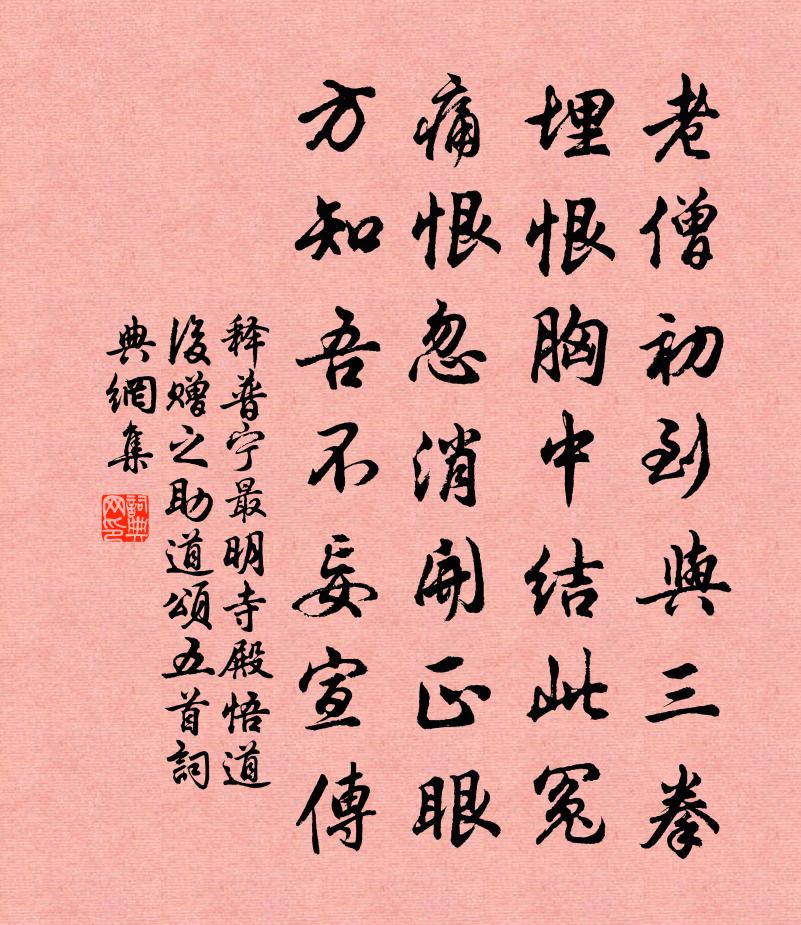 老僧初到與三拳
埋恨胸中結此冤
痛恨忽消開正眼
方知吾不妄宣傳
释普宁最明寺殿悟道
後赠之助道頌五首詞
典網集
詞典网印